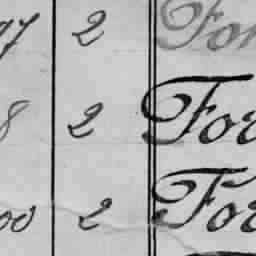 97 2 For
8 2 For
00 2 For